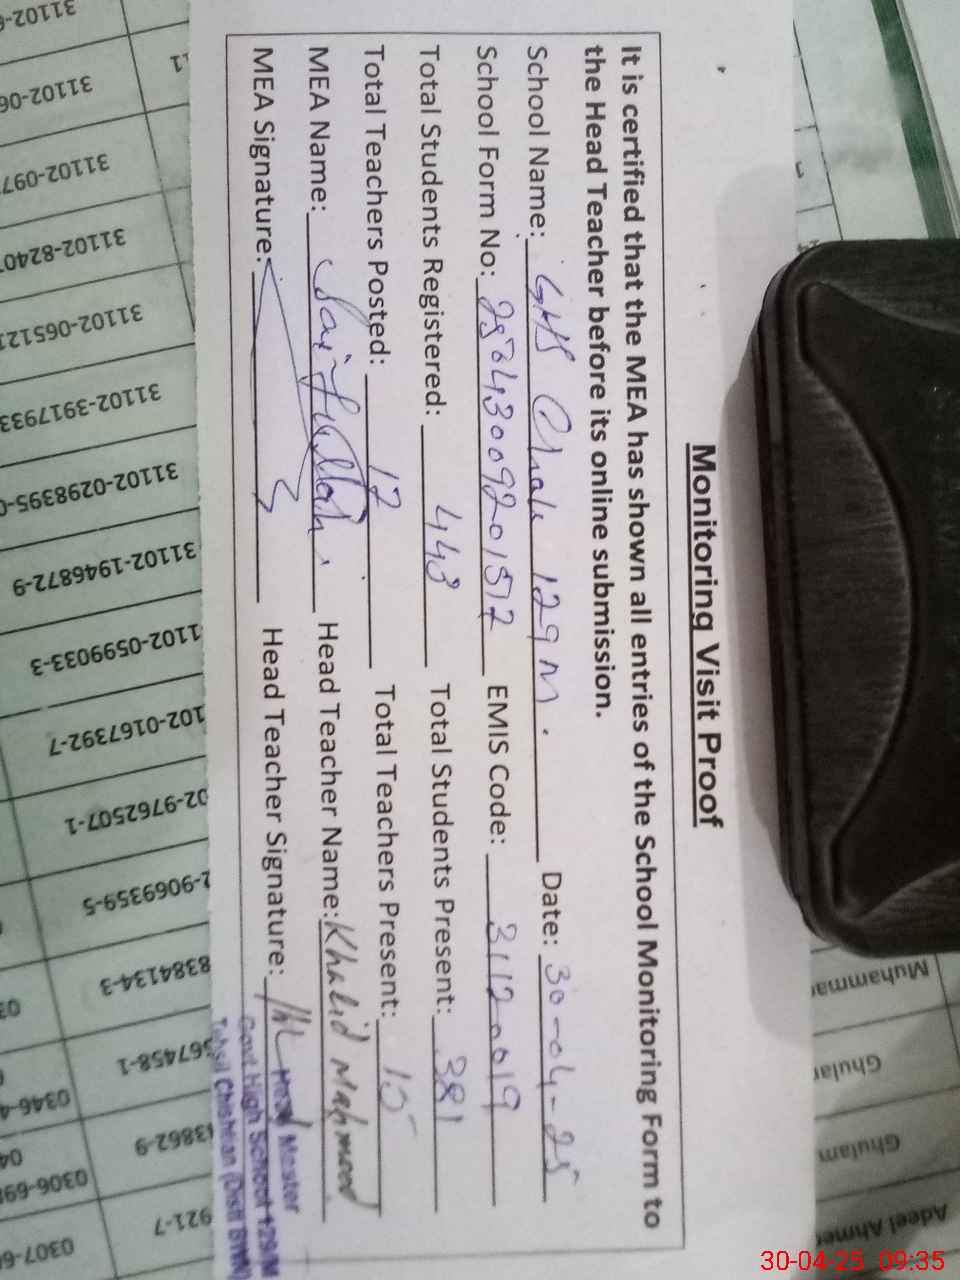 Monitoring Visit Proof
It is certified that the MEA has shown all entries of the School Monitoring Form to
the Head Teacher before its online submission.
School Name: GHS Chak 129 M. Date: 30-04-25
School Form No: EMIS Code: 31120019
Total Students Registered: 443 Total Students Present: 381
Total Teachers Posted: 17 Total Teachers Present: 15
MEA Name: Saif Ullah. Head Teacher Name: Khalid Mahmood
MEA Signature: Head Teacher Signature:
Head Master
Govt. High School 129/M
Tehsil Chishtian (Distt BWN)
31102-06
31102-097
31102-8240
31102-065121
31102-3917933
31102-0298395-
31102-1946872-9
1102-0599033-3
102-0167392-7
02-9762507-1
2-9069359-5
8384134-3
567458-1
3862-9
921-7
0346-4
0306-69
0307-6
Muhamma
Ghulam
Adeel Ahme
30-04-25 09:35